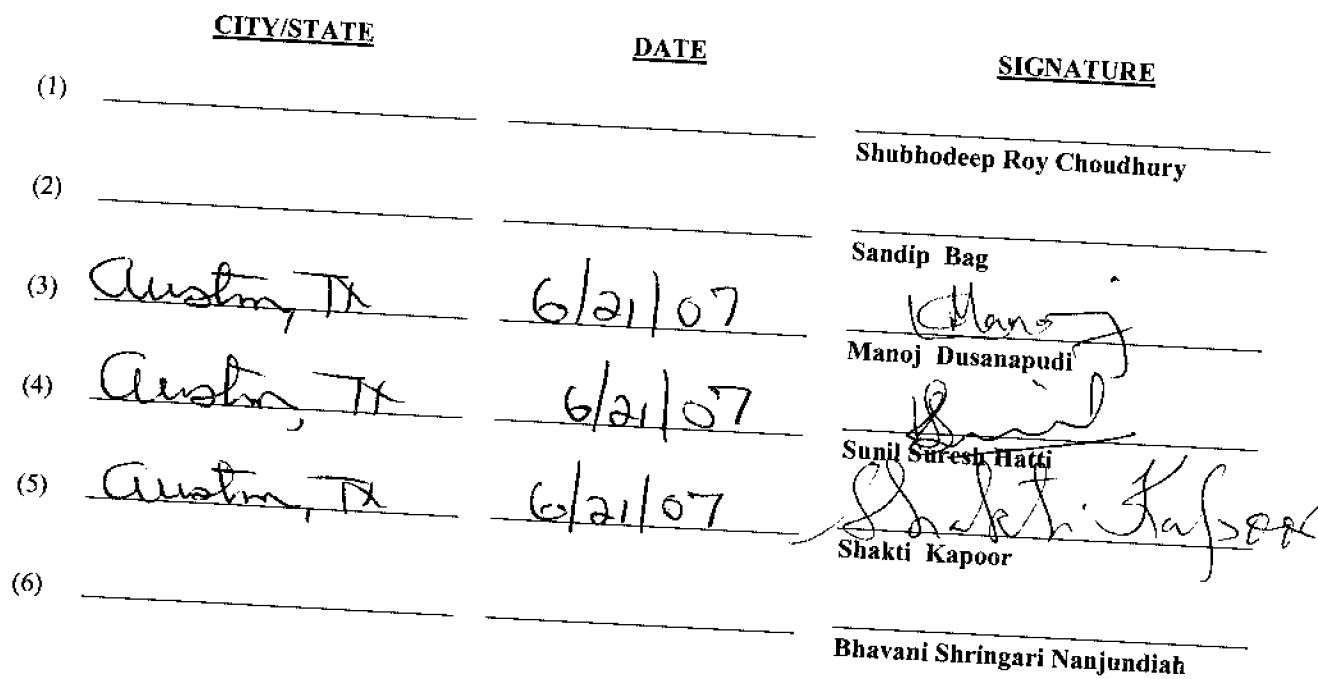 CITY/STATE DATE SIGNATURE
(1)
Shubhodeep Roy Choudhury
(2)
Sandip Bag
(3) Austin, TX 6/21/07 Manoj
Manoj Dusanapudi
(4) Austin, TX 6/21/07 Sunil
Sunil Suresh Hatti
(5) Austin, TX 6/21/07 Shakti Kapoor
Shakti Kapoor
(6)
Bhavani Shringari Nanjundiah